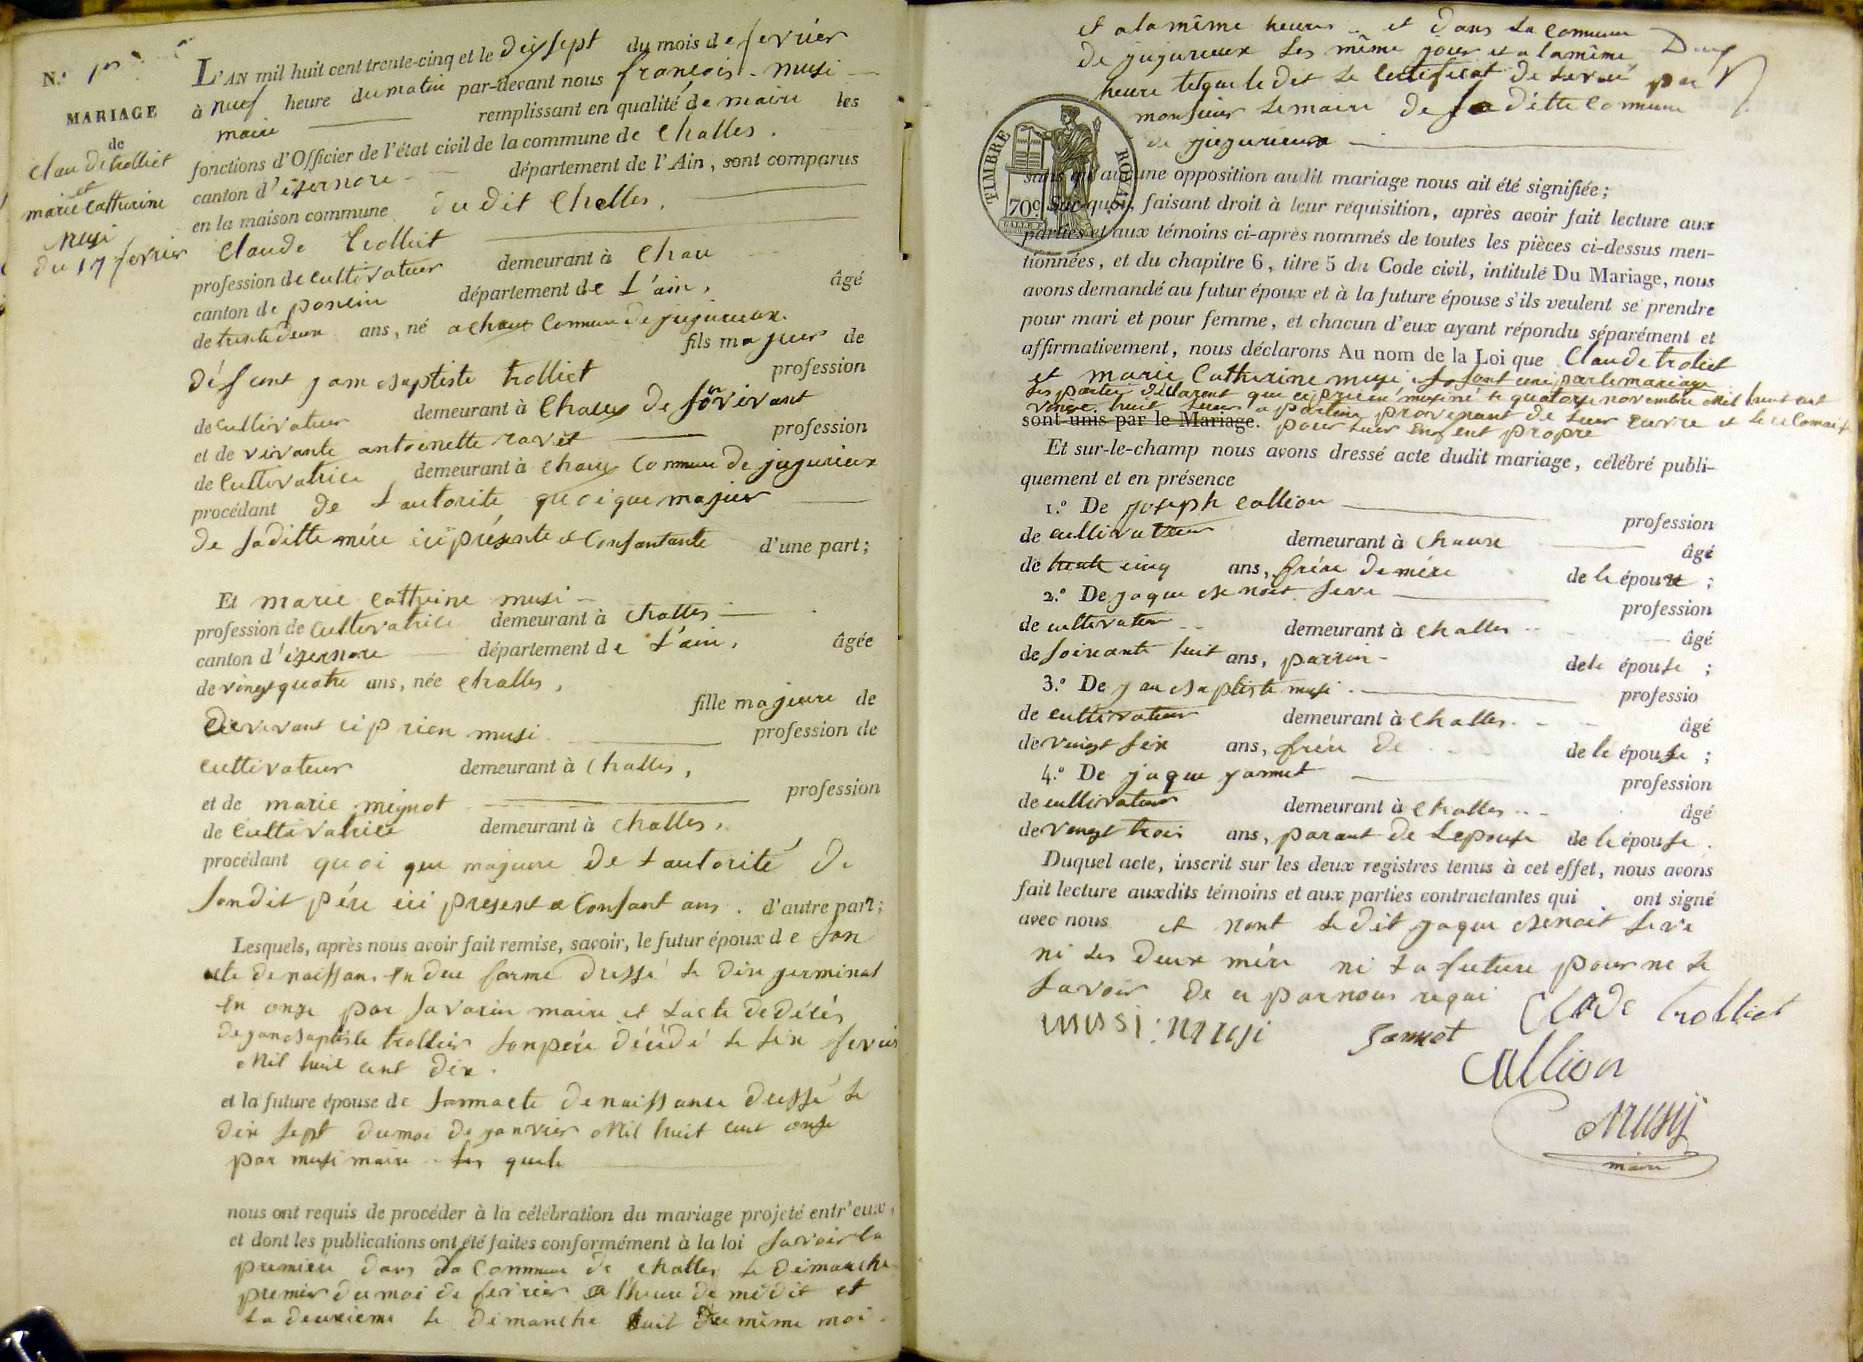 N.º 1er
MARIAGE
de
Claude trolliet
et
marie Catherine
Musi
du 17 fevrier
L'AN mil huit cent trente-cinq et le dix sept du mois de fevrier
à neuf heure du matin par-devant nous françois musi
maire remplissant en qualité de maire les
fonctions d'Officier de l'état civil de la commune de Challes.
canton d'izernore département de l'Ain, sont comparus
en la maison commune du dit Challes.
Claude trolliet
profession de cultivateur demeurant à Chau
canton de poncin département de L'ain, âgé
de trente deux ans, né a chaux Commune de jujurieux.
fils majeur de
défunt jean baptiste trolliet profession
de cultivateur demeurant à Chaux de son vivant
et de vivante antoinette ravet profession
de Cultivatrice demeurant à Chaux Commune de jujurieux
procédant de L'autorité quoi que majeur
de sa ditte mère ici présente et Consantante d'une part;
Et marie catherine musi
profession de Cultivatrice demeurant à challes
canton d'izernore département de L'ain, âgée
de vingt quatre ans, née challes,
fille majeure de
de vivant ciprien musi profession de
cultivateur demeurant à challes,
et de marie mignot profession
de Cultivatrice demeurant à challes,
procédant quoi que majeure de L'autorité de
son dit père ici présent et Consant ans. d'autre part;
Lesquels, après nous avoir fait remise, savoir, le futur époux de son
acte de naissan. en due forme dressé le dix germinal
en onze par savarin maire et L'acte de décés
de jean baptiste trollier son père décédé le six fevrier
Mil huit cent dix.
et la future épouse de son nacte de naissance dressé le
dix sept du moi de janvier Mil huit cent onze
par musi maire les quels
nous ont requis de procéder à la célébration du mariage projeté entr'eux,
et dont les publications ont été faites conformément à la loi savoir la
premiere dans la Commune de challes le dimanche
premier du moi de fevrier a l'heure de midit et
La deuxieme le dimanche huit du même moi.
et a la même heure et dans la commune
de jujurieux les même jour et a la même
heure tel que le dit le certificat de par
monsieur le maire de sa ditte commune
de jujurieux
TIMBRE ROYAL
70c
sans qu'aucune opposition audit mariage nous ait été signifiée;
Sur quoi, faisant droit à leur réquisition, après avoir fait lecture aux
parties et aux témoins ci-après nommés de toutes les pièces ci-dessus men-
tionnées, et du chapitre 6, titre 5 du Code civil, intitulé Du Mariage, nous
avons demandé au futur époux et à la future épouse s'ils veulent se prendre
pour mari et pour femme, et chacun d'eux ayant répondu séparément et
affirmativement, nous déclarons Au nom de la Loi que Claude troliet
et marie Catherine musi sont unie par le mariage
les parties déclarent que ciprien musi né le quatorze novembre Mil huit cent
vingt huit provenant de leur euvre et le reconnaisse
sont unis par le Mariage. pour leur enfent propre
Et sur-le-champ nous avons dressé acte dudit mariage, célébré publi-
quement et en présence
1.º De joseph callion profession
de cultivateur demeurant à Chaux âgé
de trente cinq ans, frère de mère de le époux ;
2.º De jaque benoit seve profession
de cultivateur demeurant à challes âgé
de soixante huit ans, parrin de le épouse ;
3.º De jan baptiste musi profession
de cultivateur demeurant à Challes. âgé
de vingt six ans, frère de de le épouse ;
4.º De jaque jannet profession
de cultivateur demeurant à Challes âgé
de vingt trois ans, parant de Lepouse de le épouse.
Duquel acte, inscrit sur les deux registres tenus à cet effet, nous avons
fait lecture auxdits témoins et aux parties contractantes qui ont signé
avec nous et nont le dit jaque benoit seve
ni les deux mère ni La future pour ne le
savoir de ce par nous requi
MUSSI musi Jannet Clade trolliet
Callion
Musij
maire